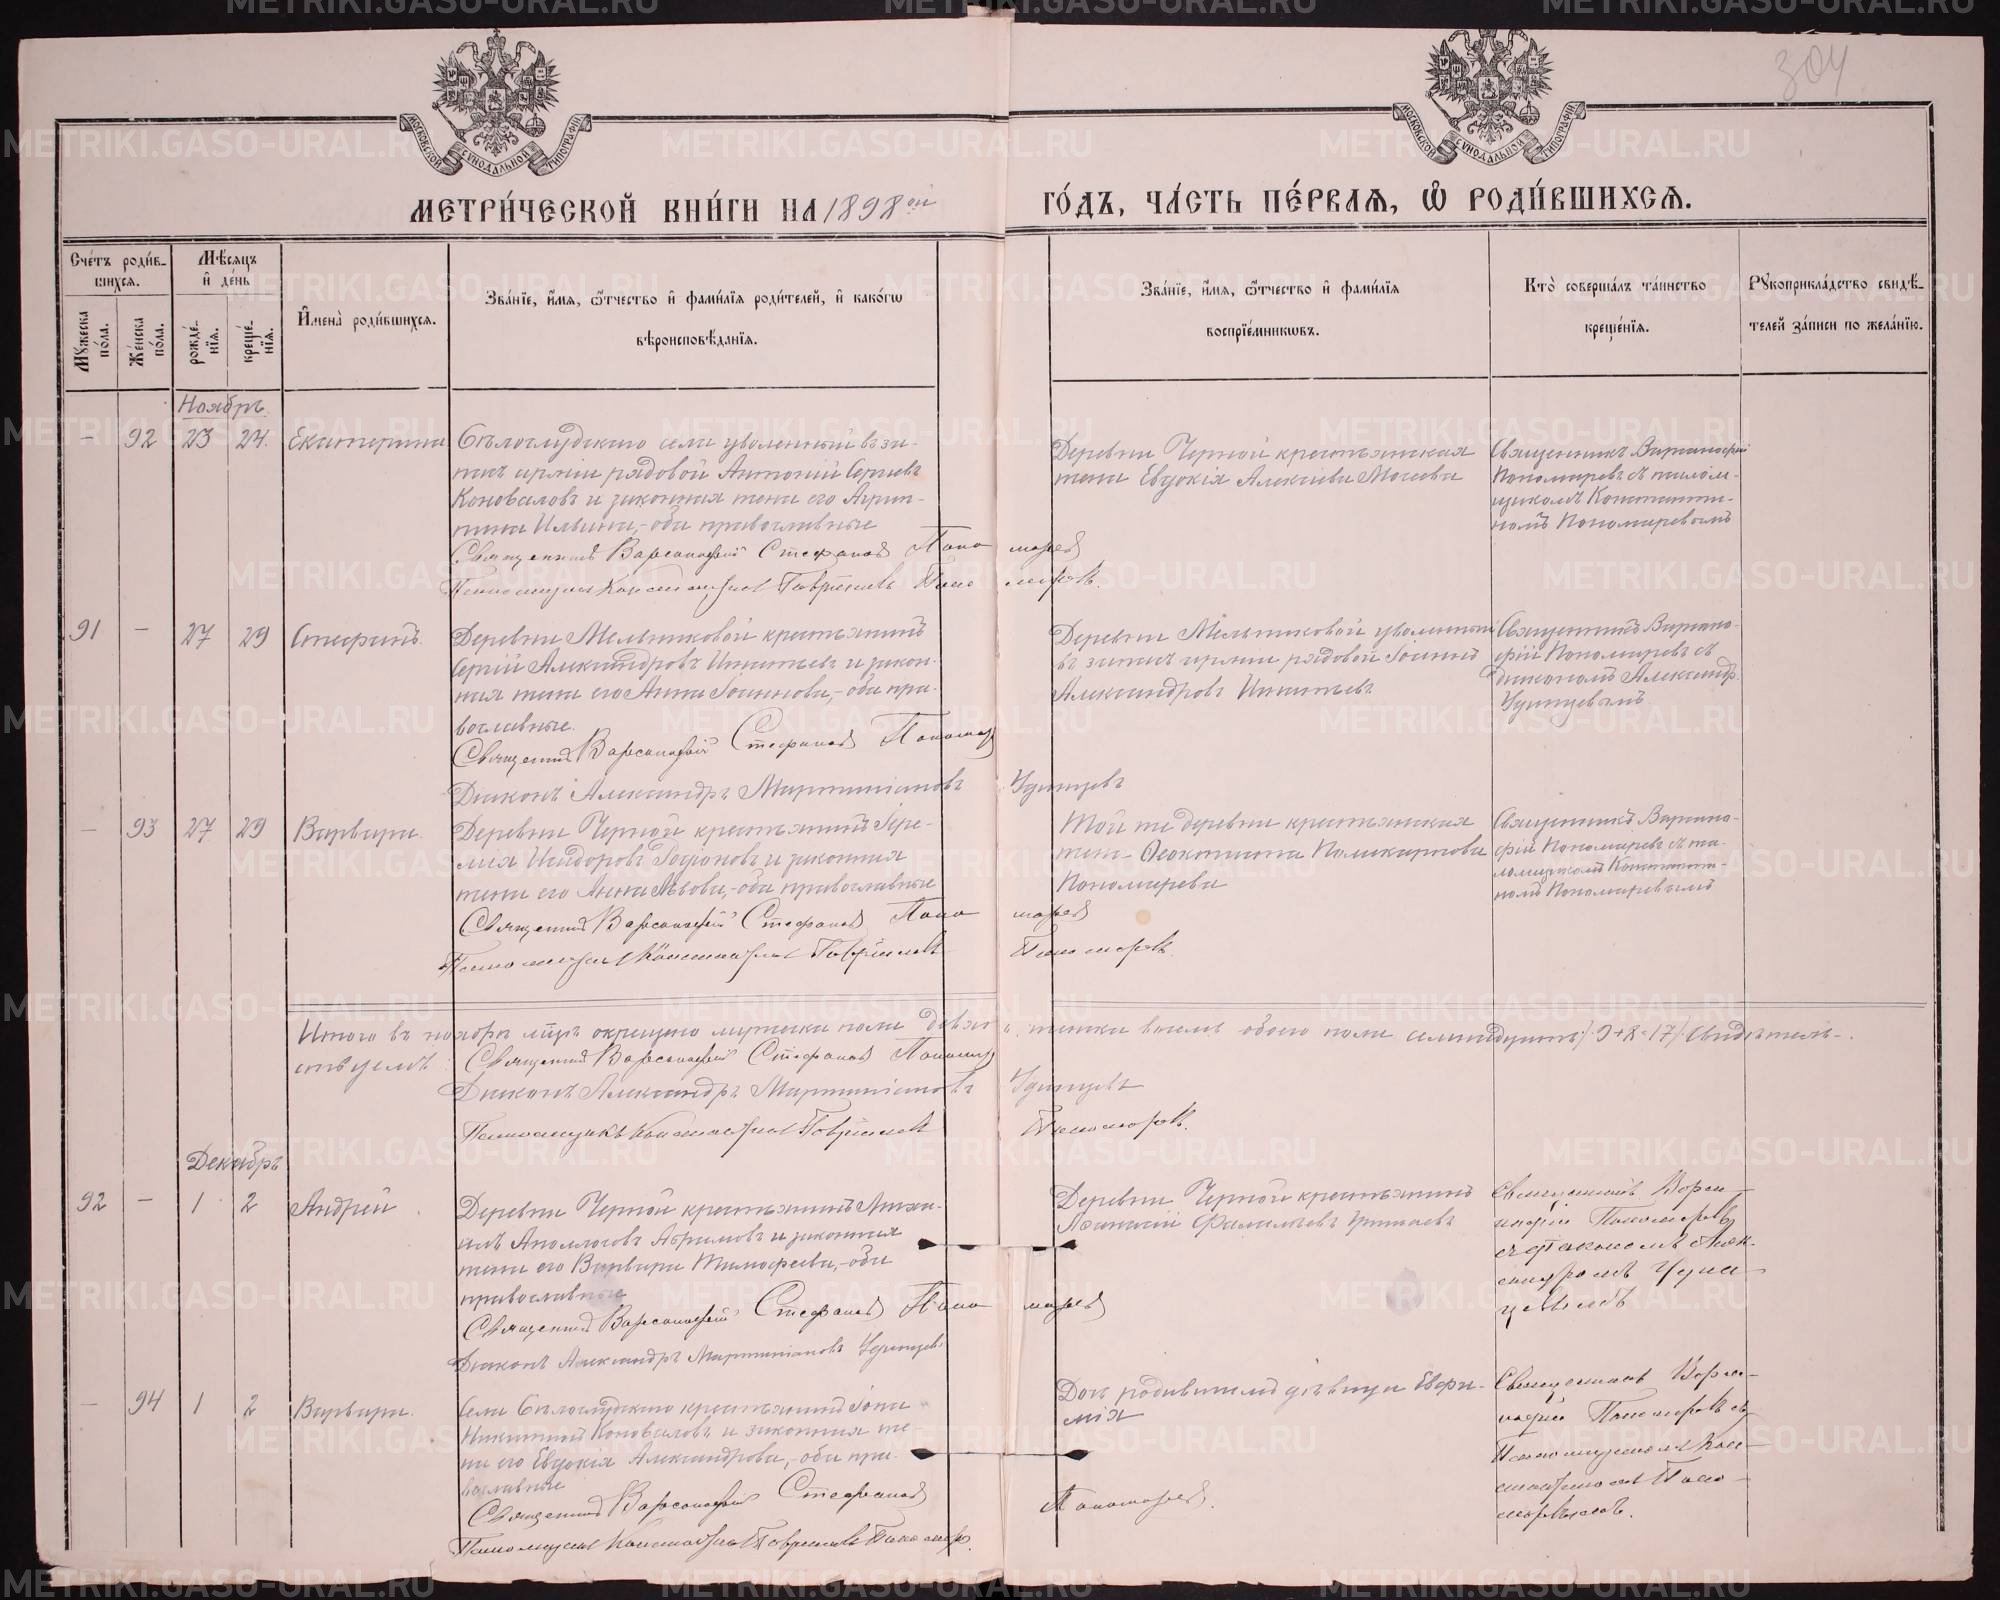 304
МОСКОВСКОЙ СѴНОДАЛЬНОЙ ТИПОГРАФІИ
МОСКОВСКОЙ СѴНОДАЛЬНОЙ ТИПОГРАФІИ
МЕТРИ́ЧЕСКОЙ КНИ́ГИ НА 1898 ой
ГО́ДЪ, ЧА́СТЬ ПЕ́РВАѦ, Ѿ РОДИ́ВШИХСѦ.
Сче́тъ роди́в-
шихсѧ.
Мꙋжеска по́ла.
Же́нска по́ла.
Мѣ́сѧцъ и де́нь
рожде́-нїѧ.
креще́-нїѧ.
Имена̀ роди́вшихсѧ.
Зва́нїе, и́мѧ, ѻ́тчество и фами́лїѧ роди́телей, и како́гѡ
вѣроисповѣ́данїѧ.
Зва́нїе, и́мѧ, ѻ́тчество и фами́лїѧ
воспрїе́мникѡвъ.
Кто̀ соверша́лъ та́инство
креще́нїѧ.
Рꙋкоприкла́дство свидѣ́-
телей за́писи по жела́нїю.
Ноябрь.
– 92 23 24. Екатерина
Бѣлослудскаго села уволенный въ за-
пасъ арміи рядовой Антоній Сергѣевъ
Коноваловъ и законная жена его Агрип-
пина Ильина,-оба православные
Священникъ Варсонофій Стефановъ Пономаревъ
Псаломщикъ Константинъ Гавріиловъ Пономаревъ.
Деревни Черной крестьянская
жена Евдокія Алексѣева Мосѣева
Священникъ Варсанофій
Пономаревъ съ псалом-
щикомъ Константи-
номъ Пономаревымъ
91 – 27 29 Стефанъ.
Деревни Мельниковой крестьянинъ
Сергій Александровъ Игнатьевъ и закон-
ная жена его Анна Іоаннова,-оба пра-
вославные.
Священникъ Варсонофій Стефановъ Пономар
Діаконъ Александръ Мартиніановъ Удинцевъ
Деревни Мельниковой уволенный
въ запасъ арміи рядовой Іоаннъ
Александровъ Игнатьевъ
Священникъ Варсано-
фій Пономаревъ съ
діакономъ Александр.
Удинцевымъ
– 93 27 29 Варвара.
Деревни Черной крестьянинъ Іере-
мія Исидоровъ и законная
жена его Анна Львова,-оба православные
Священникъ Варсонофій Стефановъ Пономаревъ
Псаломщикъ Константинъ Гавріиловъ Пономаревъ.
Той же деревни крестьянская
жена Ѳеоктиста Поликарпова
Пономарева
Священникъ Варсано-
фій Пономаревъ съ пса-
ломщикомъ Константи-
номъ Пономаревымъ
Итого въ ноябрѣ мцѣ окрещено мужеска пола девять, женска восемь обоего пола семнадцать (9+8=17) Свидѣтель-
ствуемъ: Священникъ Варсонофій Стефановъ Пономар
Діаконъ Александръ Мартиніановъ Удинцевъ
Псаломщикъ Константинъ Гавріиловъ Пономаревъ.
Декабрь
92 – 1 2 Андрей
Деревни Черной крестьянинъ Миха-
илъ Аполлосовъ Абрамовъ и законная
жена его Варвара Тимофеева,-оба
православные
Священникъ Варсонофій Стефановъ Пономаревъ
Діаконъ Александръ Мартиніановъ Удинцевъ
Деревни Черной крестьянинъ
Аѳанасій
Священникъ Варсо-
нофій Пономаревъ
съ Діакономъ Алек-
сандромъ Удин-
цевымъ
– 94 1 2 Варвара.
Села Бѣлослудскаго крестьянинъ Іона
Никитинъ Коноваловъ и законная же-
на его Евдокія Александрова,-оба пра-
вославные
Священникъ Варсонофій Стефановъ Пономаревъ.
Псаломщикъ Константинъ Гавріиловъ Пономар.
Дочь родившагося дѣвица Евфи-
мія
Священникъ Варсо-
нофій Пономаревъ съ
Псаломщикомъ Кон-
стантиномъ Поно-
маревымъ.
METRIKI.GASO-URAL.RU